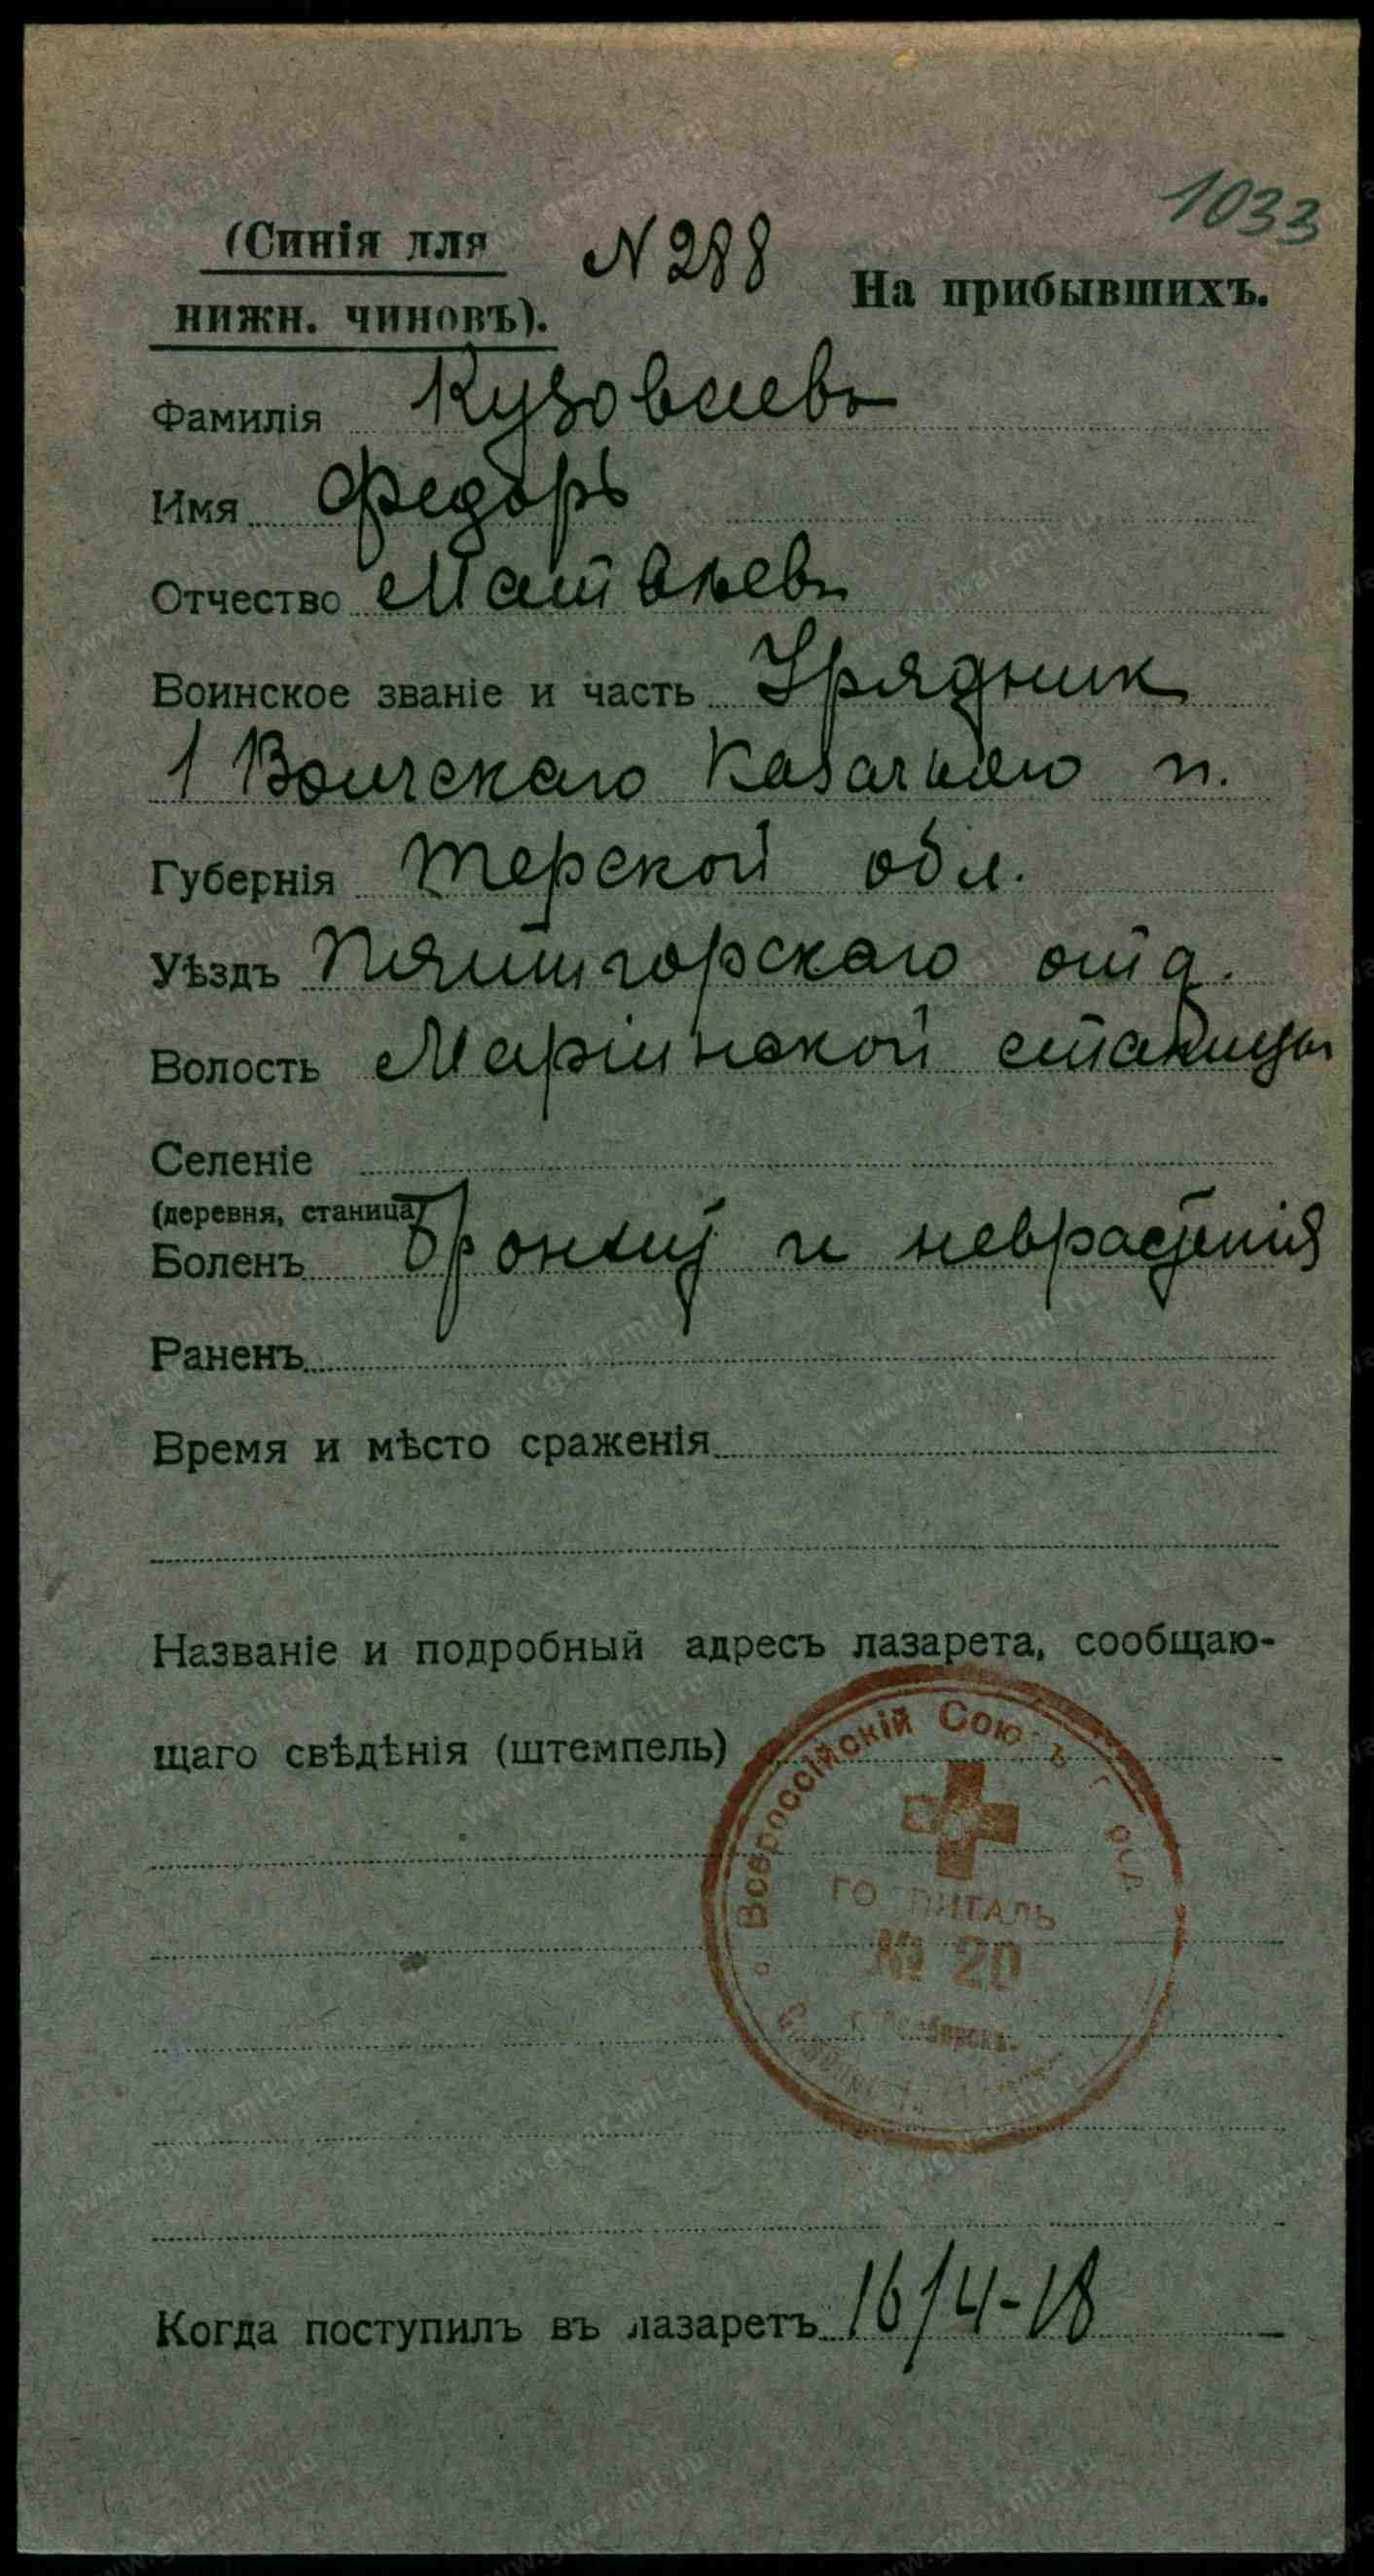 1033
(Синія для № 288 На прибывшихъ.
нижн. чиновъ).
Фамилія Кузовлевъ
Имя Федоръ
Отчество Матвѣевъ
Воинское званіе и часть Урядник
1 Волгскаго Казачьяго п.
Губернія Терской обл.
Уѣздъ Пятигорскаго отд.
Волость Маріинской станицы
Селеніе
(деревня, станица)
Боленъ Бронхит и неврастенія
Раненъ
Время и мѣсто сраженія
Названіе и подробный адресъ лазарета, сообщаю-
щаго свѣдѣнія (штемпель)
Всероссійскій Союзъ
ГОСПИТАЛЬ
№ 20
Когда поступилъ въ лазаретъ 16/4-18
www.gwar.mil.ru